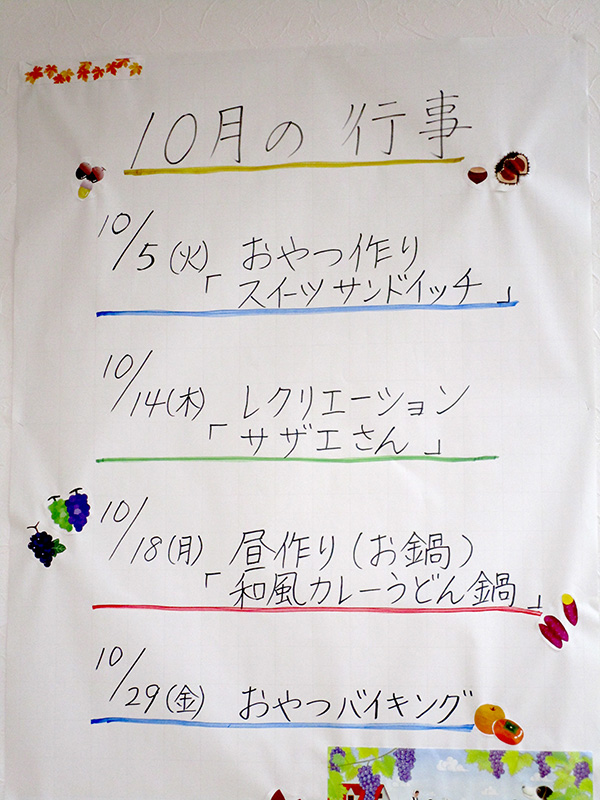 10月の行事
10/5(火) おやつ作り
「スイーツサンドイッチ」
10/14(木) レクリエーション
「サザエさん」
10/18(月) 昼作り(お鍋)
「和風カレーうどん鍋」
10/29(金) おやつバイキング